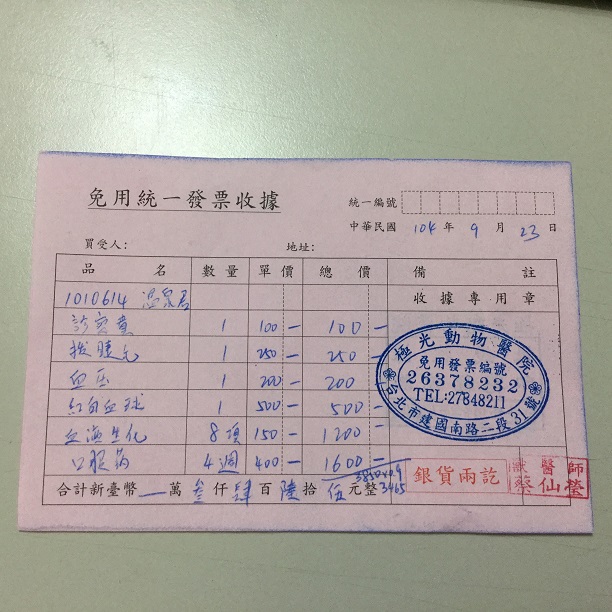 免用統一發票收據
統一編號
中華民國 104 年 9 月 23 日
買受人： 地址：
品名 數量 單價 總價 備註
1010614 溫泉君 收據專用章
診察費 1 100 - 100 -
1 250 - 250 -
血压 1 200 - 200
紅白血球 1 500 - 500 -
血液生化 8項 150 - 1200 -
口服葯 4週 400 - 1600 -
3850x0.9
3465
合計新臺幣 — 萬 叁 仟 肆 百 陸 拾 伍 元整
極光動物醫院
免用發票編號
26378232
TEL:27848211
台北市建國南路二段31號
銀貨兩訖
獸醫師
蔡仙瑩